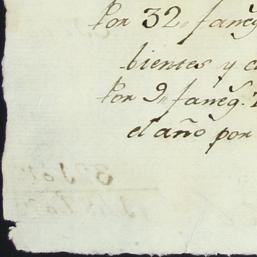 Por 32,, faneg
bientes y c
Por 9,, faneg.
el año por